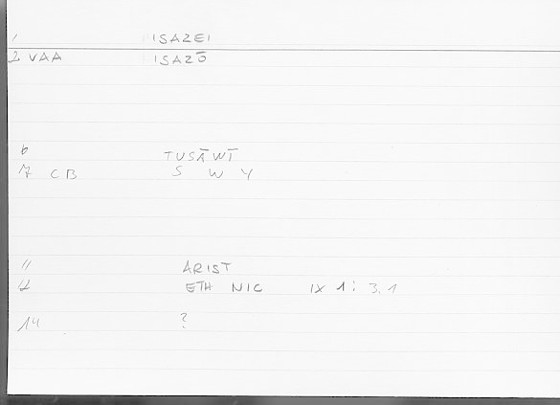 1 ISAZEI
2 VAA ISAZŌ
6 TUSĀWĪ
7 CB S W Y
11 ARIST
12 ETH NIC IX 1 : 3.1
14 ?